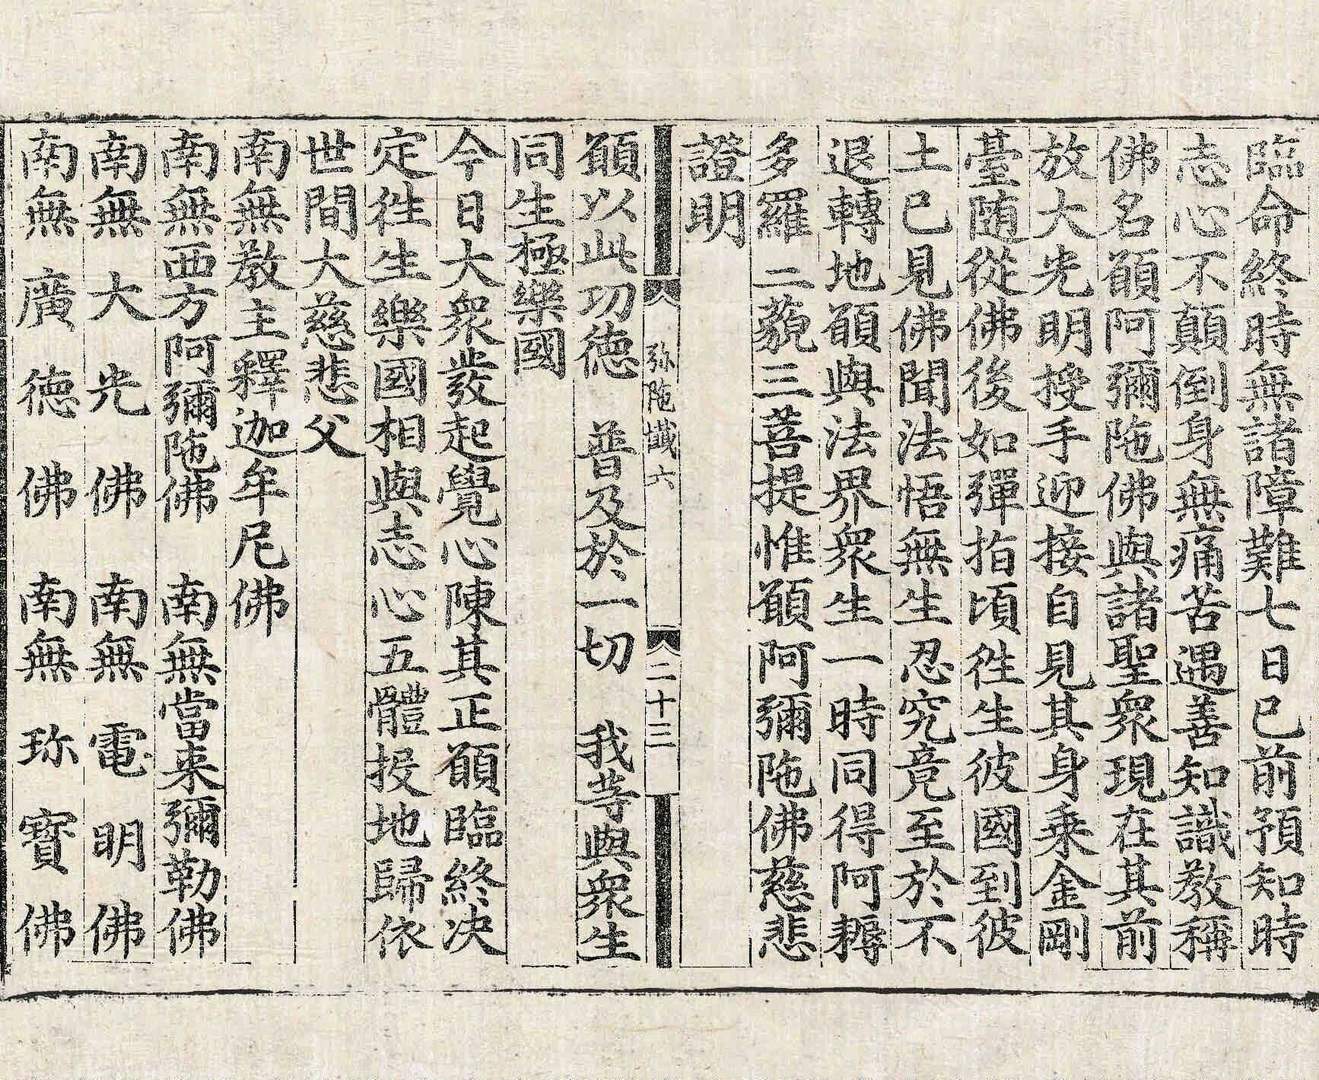 臨命終時無諸障難七日已前預知時
志心不顛倒身無痛苦遇善知識教稱
佛名願阿彌陁佛與諸聖衆現在其前
放大光明授手迎接自見其身乘金剛
臺随從佛後如彈指頃徃生彼國到彼
土已見佛聞法悟無生忍究竟至於不
退轉地願與法界衆生一時同得阿耨
多羅三藐三菩提惟願阿彌陁佛慈悲
證明
弥陁懺六
二十三
願以此功德　普及於一切　我等與衆生
同生極樂國
今日大衆發起覺心陳其正願臨終决
定徃生樂國相與志心五體投地歸依
世間大慈悲父
南無教主釋迦牟尼佛
南無西方阿彌陁佛　南無當来彌勒佛
南無大光佛　南無電明佛
南無廣德佛　南無珎寶佛